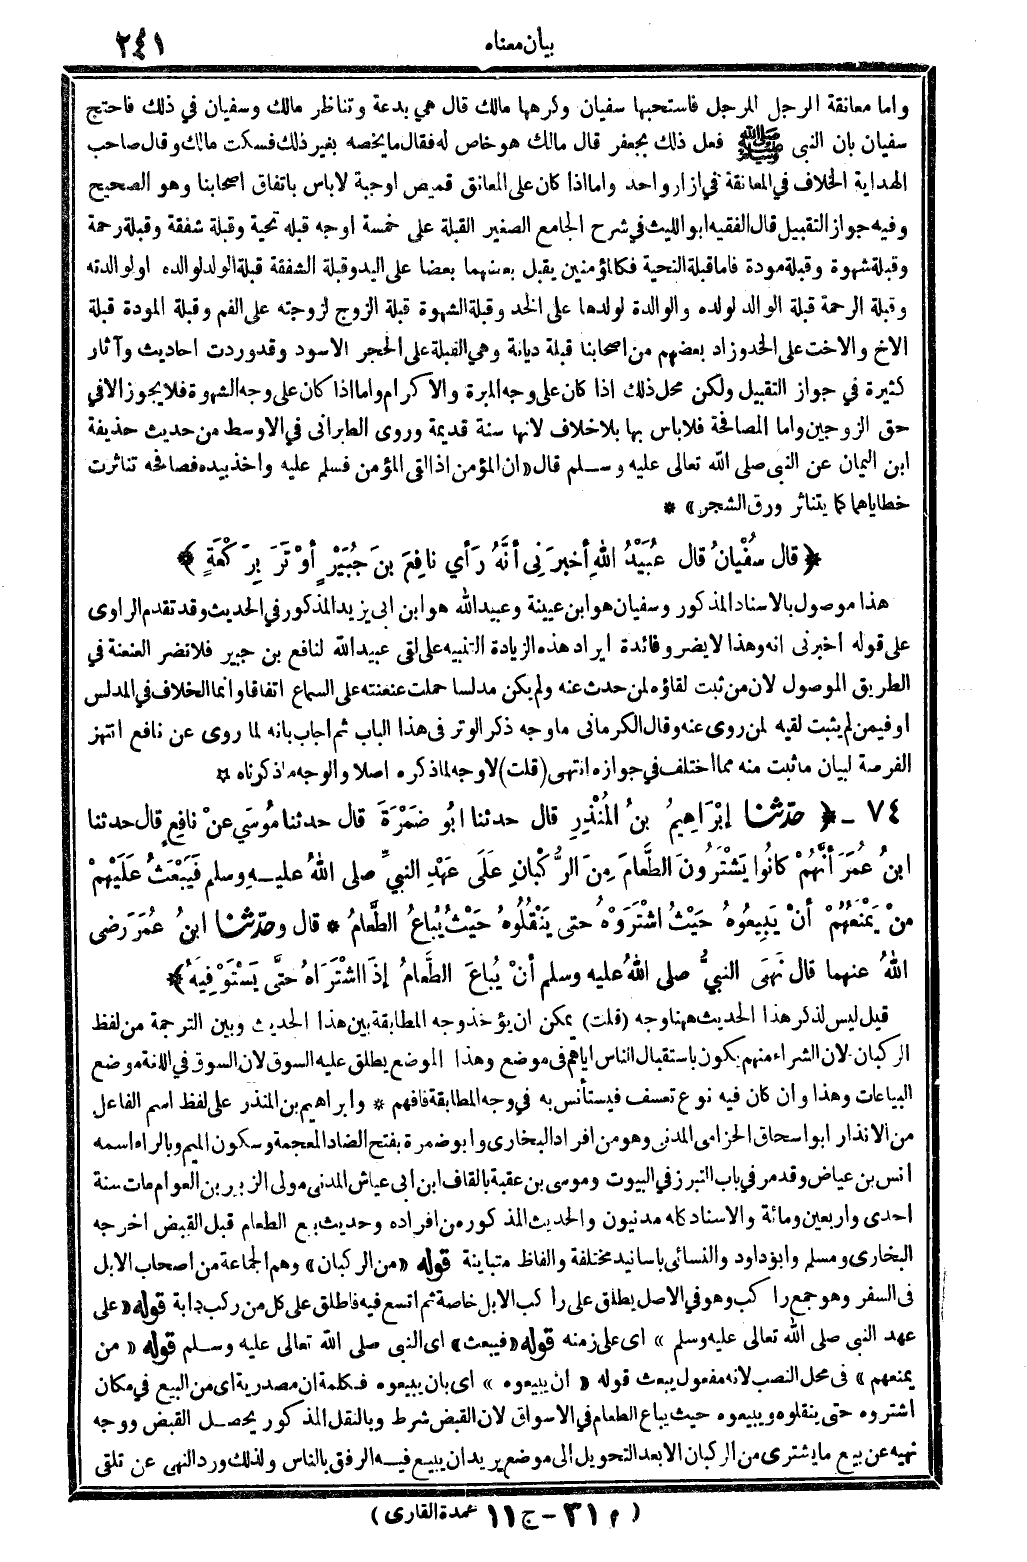 بيان معناه
٢٤١
واما معانقة الرجل للرجل فاستحبها سفيان وكرهها مالك قال هي بدعة وتناظر مالك وسفيان في ذلك فاحتج
سفيان بان النبى ﷺ فعل ذلك بجعفر قال مالك هو خاص له فقال ما يخصه بغير ذلك فسكت مالك وقال صاحب
الهداية الخلاف في المعانقة في ازار واحد واما اذا كان على المعانق قميص او جبة لا باس باتفاق اصحابنا وهو الصحيح
وفيه جواز التقبيل قال الفقيه ابو الليث في شرح الجامع الصغير القبلة على خمسة اوجه قبلة تحية وقبلة شفقة وقبلة رحمة
وقبلة شهوة وقبلة مودة فاما قبلة التحية فكالمؤمنين يقبل بعضهما بعضا على اليد وقبلة الشفقة قبلة الولد لوالده او لوالدته
وقبلة الرحمة قبلة الوالد لولده والوالدة لولدها على الخد وقبلة الشهوة قبلة الزوج لزوجته على الفم وقبلة المودة قبلة
الاخ والاخت على الخد وزاد بعضهم من اصحابنا قبلة ديانة وهي القبلة على الحجر الاسود وقد وردت احاديث وآثار
كثيرة في جواز التقبيل ولكن محل ذلك اذا كان على وجه المبرة والاكرام واما اذا كان على وجه الشهوة فلا يجوز الا في
حق الزوجين واما المصافحة فلا باس بها بلا خلاف لانها سنة قديمة وروى الطبرانى في الاوسط من حديث حذيفة
ابن اليمان عن النبى صلى الله تعالى عليه وسلم قال «ان المؤمن اذا لقى المؤمن فسلم عليه واخذ بيده فصافحه تناثرت
خطاياهما كما يتناثر ورق الشجر» *
﴿ قال سُفْيانُ قال عُبَيْدُ اللهِ أخبرَنى أنَّهُ رَأي نافِعَ بنَ جُبَيْرٍ أوْتَرَ بِرَكْعَةٍ ﴾
هذا موصول بالاسناد المذكور وسفيان هو ابن عيينة وعبيد الله هو ابن ابى يزيد المذكور في الحديث وقد تقدم الراوى
على قوله اخبرنى انه وهذا لا يضر وفائدة ايراد هذه الزيادة التنبيه على لقى عبيد الله لنافع بن جبير فلا تضر العنعنة في
الطريق الموصول لان من ثبت لقاؤه لمن حدث عنه ولم يكن مدلسا حملت عنعنته على السماع اتفاقا وانما الخلاف في المدلس
او فيمن لم يثبت لقيه لمن روى عنه وقال الكرمانى ما وجه ذكر الوتر فى هذا الباب ثم اجاب بانه لما روى عن نافع انتهز
الفرصة لبيان ما ثبت منه مما اختلف في جوازه انتهى (قلت) لا وجه لما ذكره اصلا والوجه ما ذكرناه ☆
٧٤ - ﴿ حدّثنا إبْرَاهِيمُ بنُ المُنْذِرِ قال حدثنا ابُو ضَمْرَةَ قال حدثنا مُوسَي عنْ نافِعٍ قال حدثنا
ابنُ عُمَرَ أنَّهُمْ كانُوا يَشْتَرُونَ الطَّعامَ مِنَ الرُّكْبانِ عَلَى عَهْدِ النبيِّ صلى اللهُ عليه وسلم فَيَبْعَثُ عَلَيْهِمْ
مَنْ يَمْنَعُهُمْ أنْ يَبِيعُوهُ حَيْثُ اشْتَرَوْهُ حتى يَنْقُلُوهُ حَيْثُ يُباعُ الطَّعامُ * قال وحدّثنا ابنُ عُمَرَ رضى
اللهُ عنهما قال نَهَى النبيُّ صلى اللهُ عليه وسلم أنْ يُباعَ الطَّعامُ إذَا اشْتَرَاهُ حتَّى يَسْتَوْفِيَهُ ﴾
قيل ليس لذكر هذا الحديث ههنا وجه (قلت) يمكن ان يؤخذ وجه المطابقة بين هذا الحديث وبين الترجمة من لفظ
الركبان لان الشراء منهم يكون باستقبال الناس اياهم فى موضع وهذا الموضع يطلق عليه السوق لان السوق في اللغة موضع
البياعات وهذا وان كان فيه نوع تعسف فيستأنس به في وجه المطابقة فافهم * وابراهيم بن المنذر على لفظ اسم الفاعل
من الانذار ابو اسحاق الحزامى المدنى وهو من افراد البخارى وابو ضمرة بفتح الضاد المعجمة وسكون الميم وبالراء اسمه
انس بن عياض وقد مر في باب التبرز في البيوت وموسى بن عقبة بالقاف ابن ابى عياش المدنى مولى الزبير بن العوام مات سنة
احدى واربعين ومائة والاسناد كله مدنيون والحديث المذكور من افراده وحديث بيع الطعام قبل القبض اخرجه
البخارى ومسلم وابو داود والنسائى باسانيد مختلفة والفاظ متباينة قوله «من الركبان» وهم الجماعة من اصحاب الابل
فى السفر وهو جمع راكب وهو في الاصل يطلق على راكب الابل خاصة ثم اتسع فيه فاطلق على كل من ركب دابة قوله «على
عهد النبى صلى الله تعالى عليه وسلم» اى على زمنه قوله «فيبعث» اى النبى صلى الله تعالى عليه وسلم قوله «من
يمنعهم» فى محل النصب لانه مفعول يبعث قوله «ان يبيعوه» اى بان يبيعوه فكلمة ان مصدرية اى من البيع في مكان
اشتروه حتى ينقلوه ويبيعوه حيث يباع الطعام في الاسواق لان القبض شرط وبالنقل المذكور يحصل القبض ووجه
نهيه عن بيع ما يشترى من الركبان الا بعد التحويل الى موضع يريد ان يبيع فيه الرفق بالناس ولذلك ورد النهى عن تلقى
( م ٣١ - ج ١١ عمدة القارى )